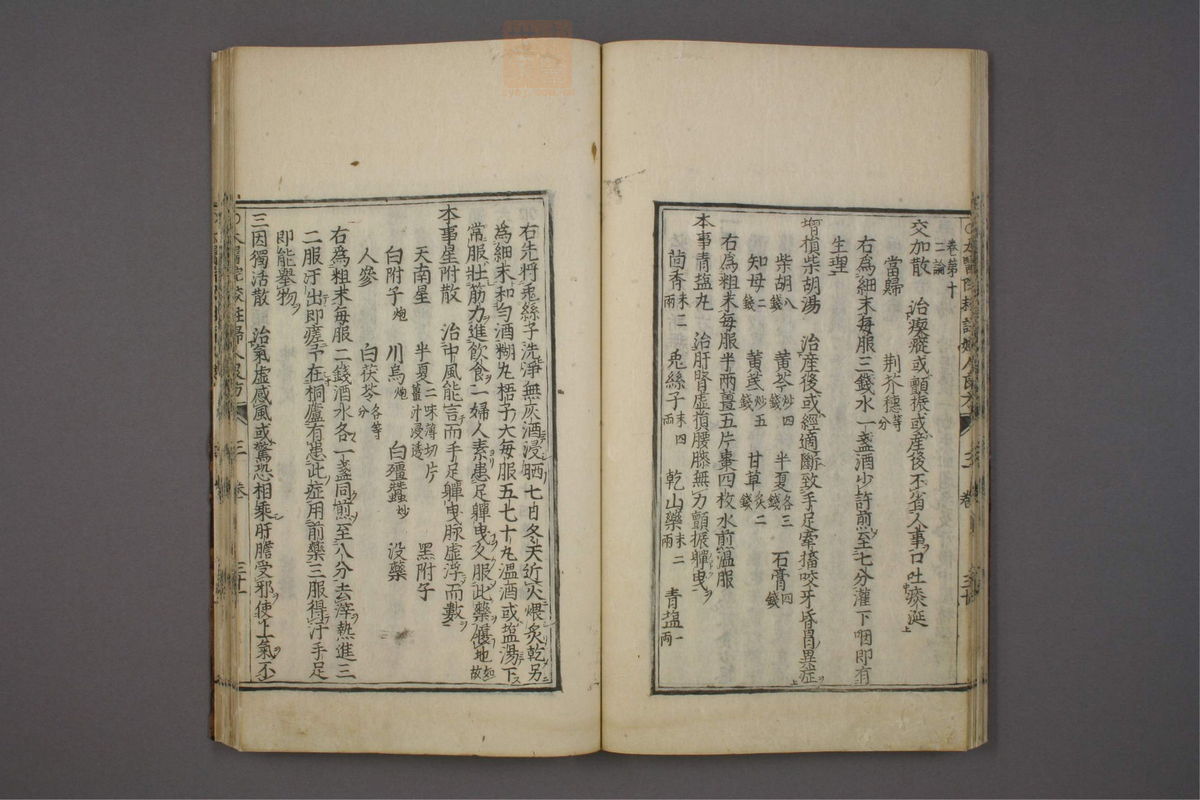 卷第十
二論
交加散　治瘈瘲或顫振或産後不省人事口吐痰涎
當歸　荆芥穗等分
右爲細末每服三錢水一盞酒少許煎至七分灌下咽即有
生理
增損柴胡湯　治産後或經適斷致手足牽搐咬牙昏冒異症
柴胡八錢　黄芩炒四錢　半夏各三錢　石膏四錢
知母二錢　黄芪炒五錢　甘草炙二錢
右爲粗末每服半兩薑五片棗四枚水煎温服
本事青塩丸　治肝腎虛損腰膝無力顫振軃曳
茴香末三兩　兎絲子末四兩　乾山藥末二兩　青塩一兩
右先將兎絲子洗淨無灰酒浸晒七日冬天近火煨炙乾另
爲細末和勻酒糊丸梧子大每服五七十丸温酒或塩湯下
常服壯筋力進飲食一婦人素患足軃曳久服此藥履地如故
本事星附散　治中風能言而手足軃曳脉虛浮而數
天南星　半夏二味薄切片薑汁浸透　黑附子
白附子炮　川烏炮　白殭蠶炒　没藥
人參　白茯苓各等分
右爲粗末每服二錢酒水各一盞同煎至八分去滓熱進三
二服汗出即瘥予在桐廬有患此症用前藥三服得汗手足
即能舉物
三因獨活散　治氣虛感風或驚恐相乘肝膽受邪使上氣不